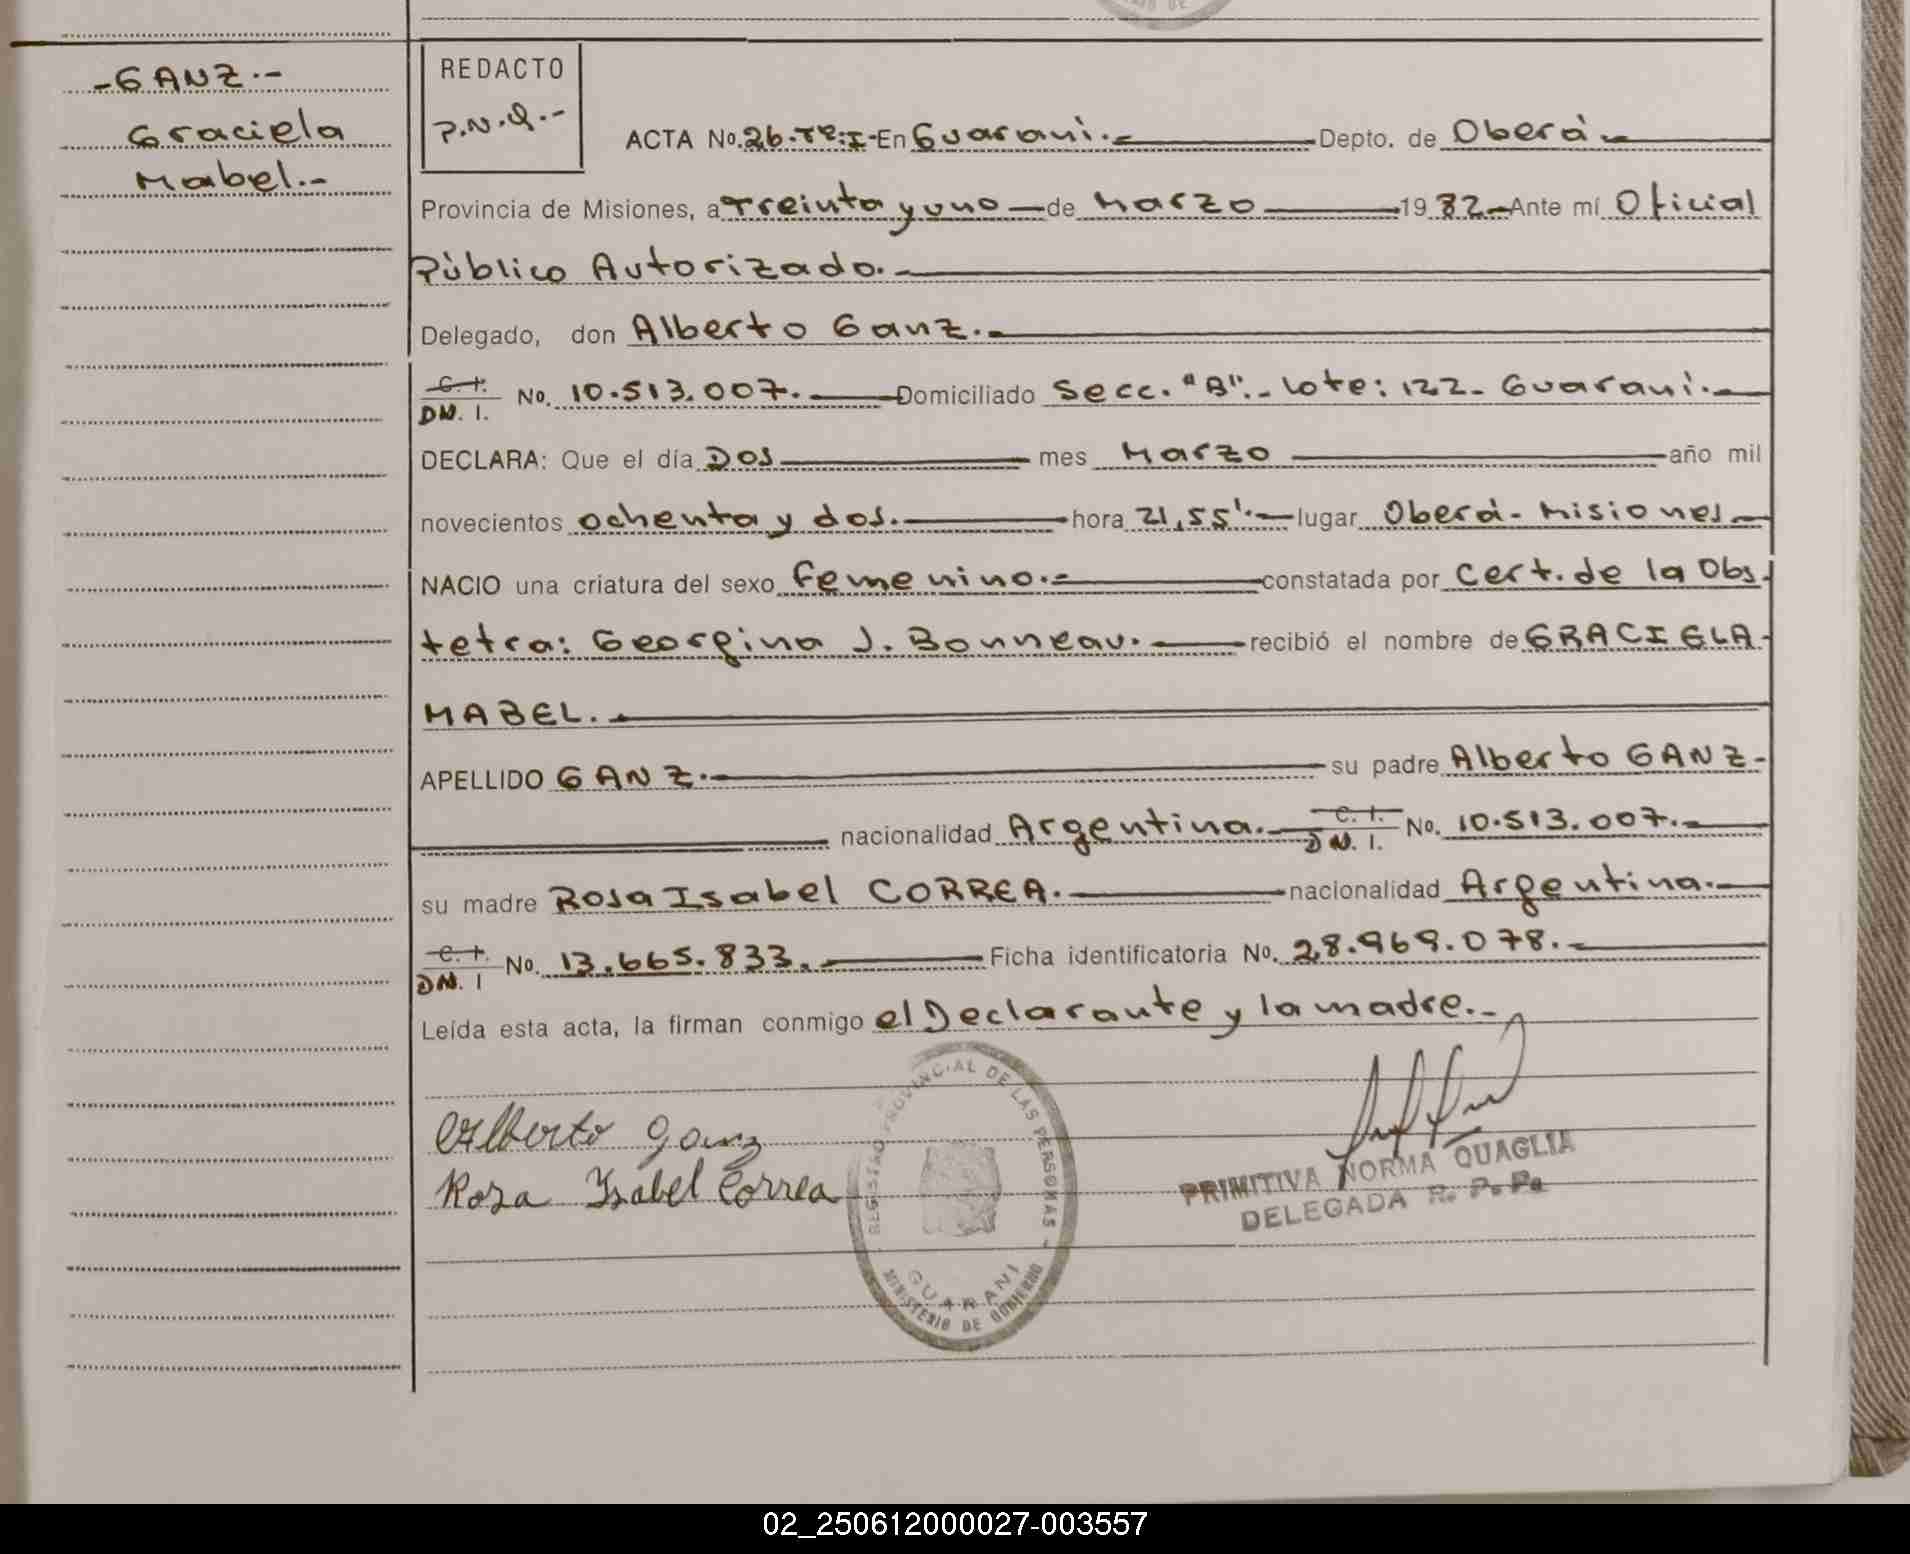 -GANZ.-
Graciela
Mabel.-
REDACTO
P.N.Q.-
ACTA No. 26-Tº:I- En Guaraní.- Depto. de Oberá.-
Provincia de Misiones, a Treinta y uno - de Marzo - 19 82.- Ante mí Oficial
Público Autorizado.-
Delegado, don Alberto Ganz.-
C. I.
DN. I. No. 10.513.007.- Domiciliado Secc. "B".- Lote: 122- Guaraní.-
DECLARA: Que el día Dos - mes Marzo - año mil
novecientos ochenta y dos.- hora 21,55'.- lugar Oberá- Misiones-
NACIO una criatura del sexo femenino.- constatada por Cert. de la Obs-
tetra: Georgina J. Bonneau.- recibió el nombre de GRACIELA-
MABEL.-
APELLIDO GANZ.- su padre Alberto GANZ-
nacionalidad Argentina.- C. I.
DN. I. No. 10.513.007.-
su madre Rosa Isabel CORREA.- nacionalidad Argentina.-
C. I.
DN. I No. 13.665.833.- Ficha identificatoria No. 28.969.078.-
Leída esta acta, la firman conmigo el Declarante y la madre.-
Alberto Ganz
Rosa Isabel Correa
REGISTRO PROVINCIAL DE LAS PERSONAS -
GUARANI
MINISTERIO DE GOBIERNO
PRIMITIVA NORMA QUAGLIA
DELEGADA R. P. Ps
02_250612000027-003557